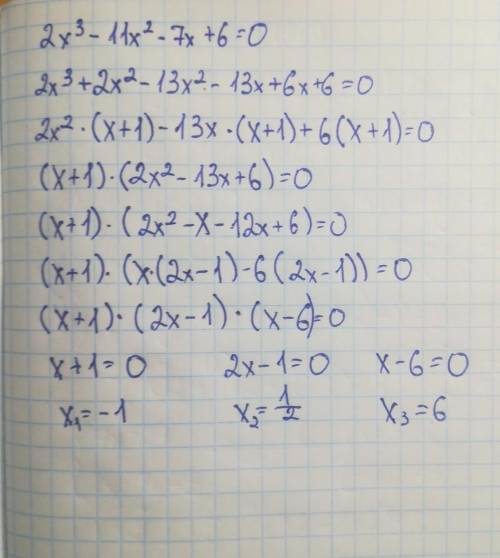 2x³ - 11x² - 7x + 6 = 0
2x³ + 2x² - 13x² - 13x + 6x + 6 = 0
2x² · (x+1) - 13x · (x+1) + 6(x+1) = 0
(x+1) · (2x² - 13x + 6) = 0
(x+1) · (2x² - x - 12x + 6) = 0
(x+1) · (x·(2x-1) - 6(2x-1)) = 0
(x+1) · (2x-1) · (x-6) = 0
x+1 = 0 2x-1 = 0 x-6 = 0
x₁ = -1 x₂ = 1/2 x₃ = 6